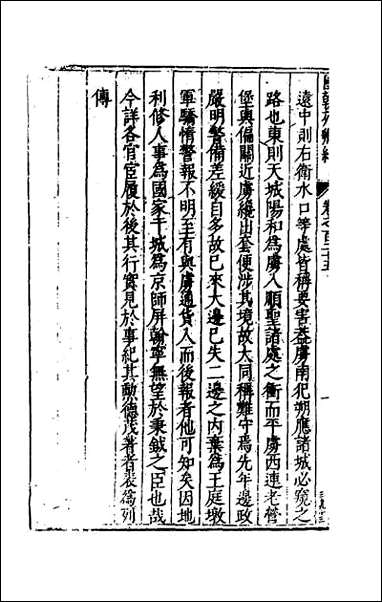 遠中則右衛水口等處皆稱要害蓋虜南犯朔應諸城必窺之
路也東則天城陽和為虜人順聖諸處之衝而平虜西連老營
堡與偏關近虜纔出套便涉其境故大同稱難守焉先年邊政
嚴明警備差緩自多故已來大邊已失二邊之內棄為王庭墩
軍驕惰警報不明至有與虜通貨入而後報者他可知矣因地
利修人事為國家干城為京師屏翰寧無望於秉鉞之臣也哉
今詳各官宦履於後其行實見於事紀其勳德茂著者表為列
傳